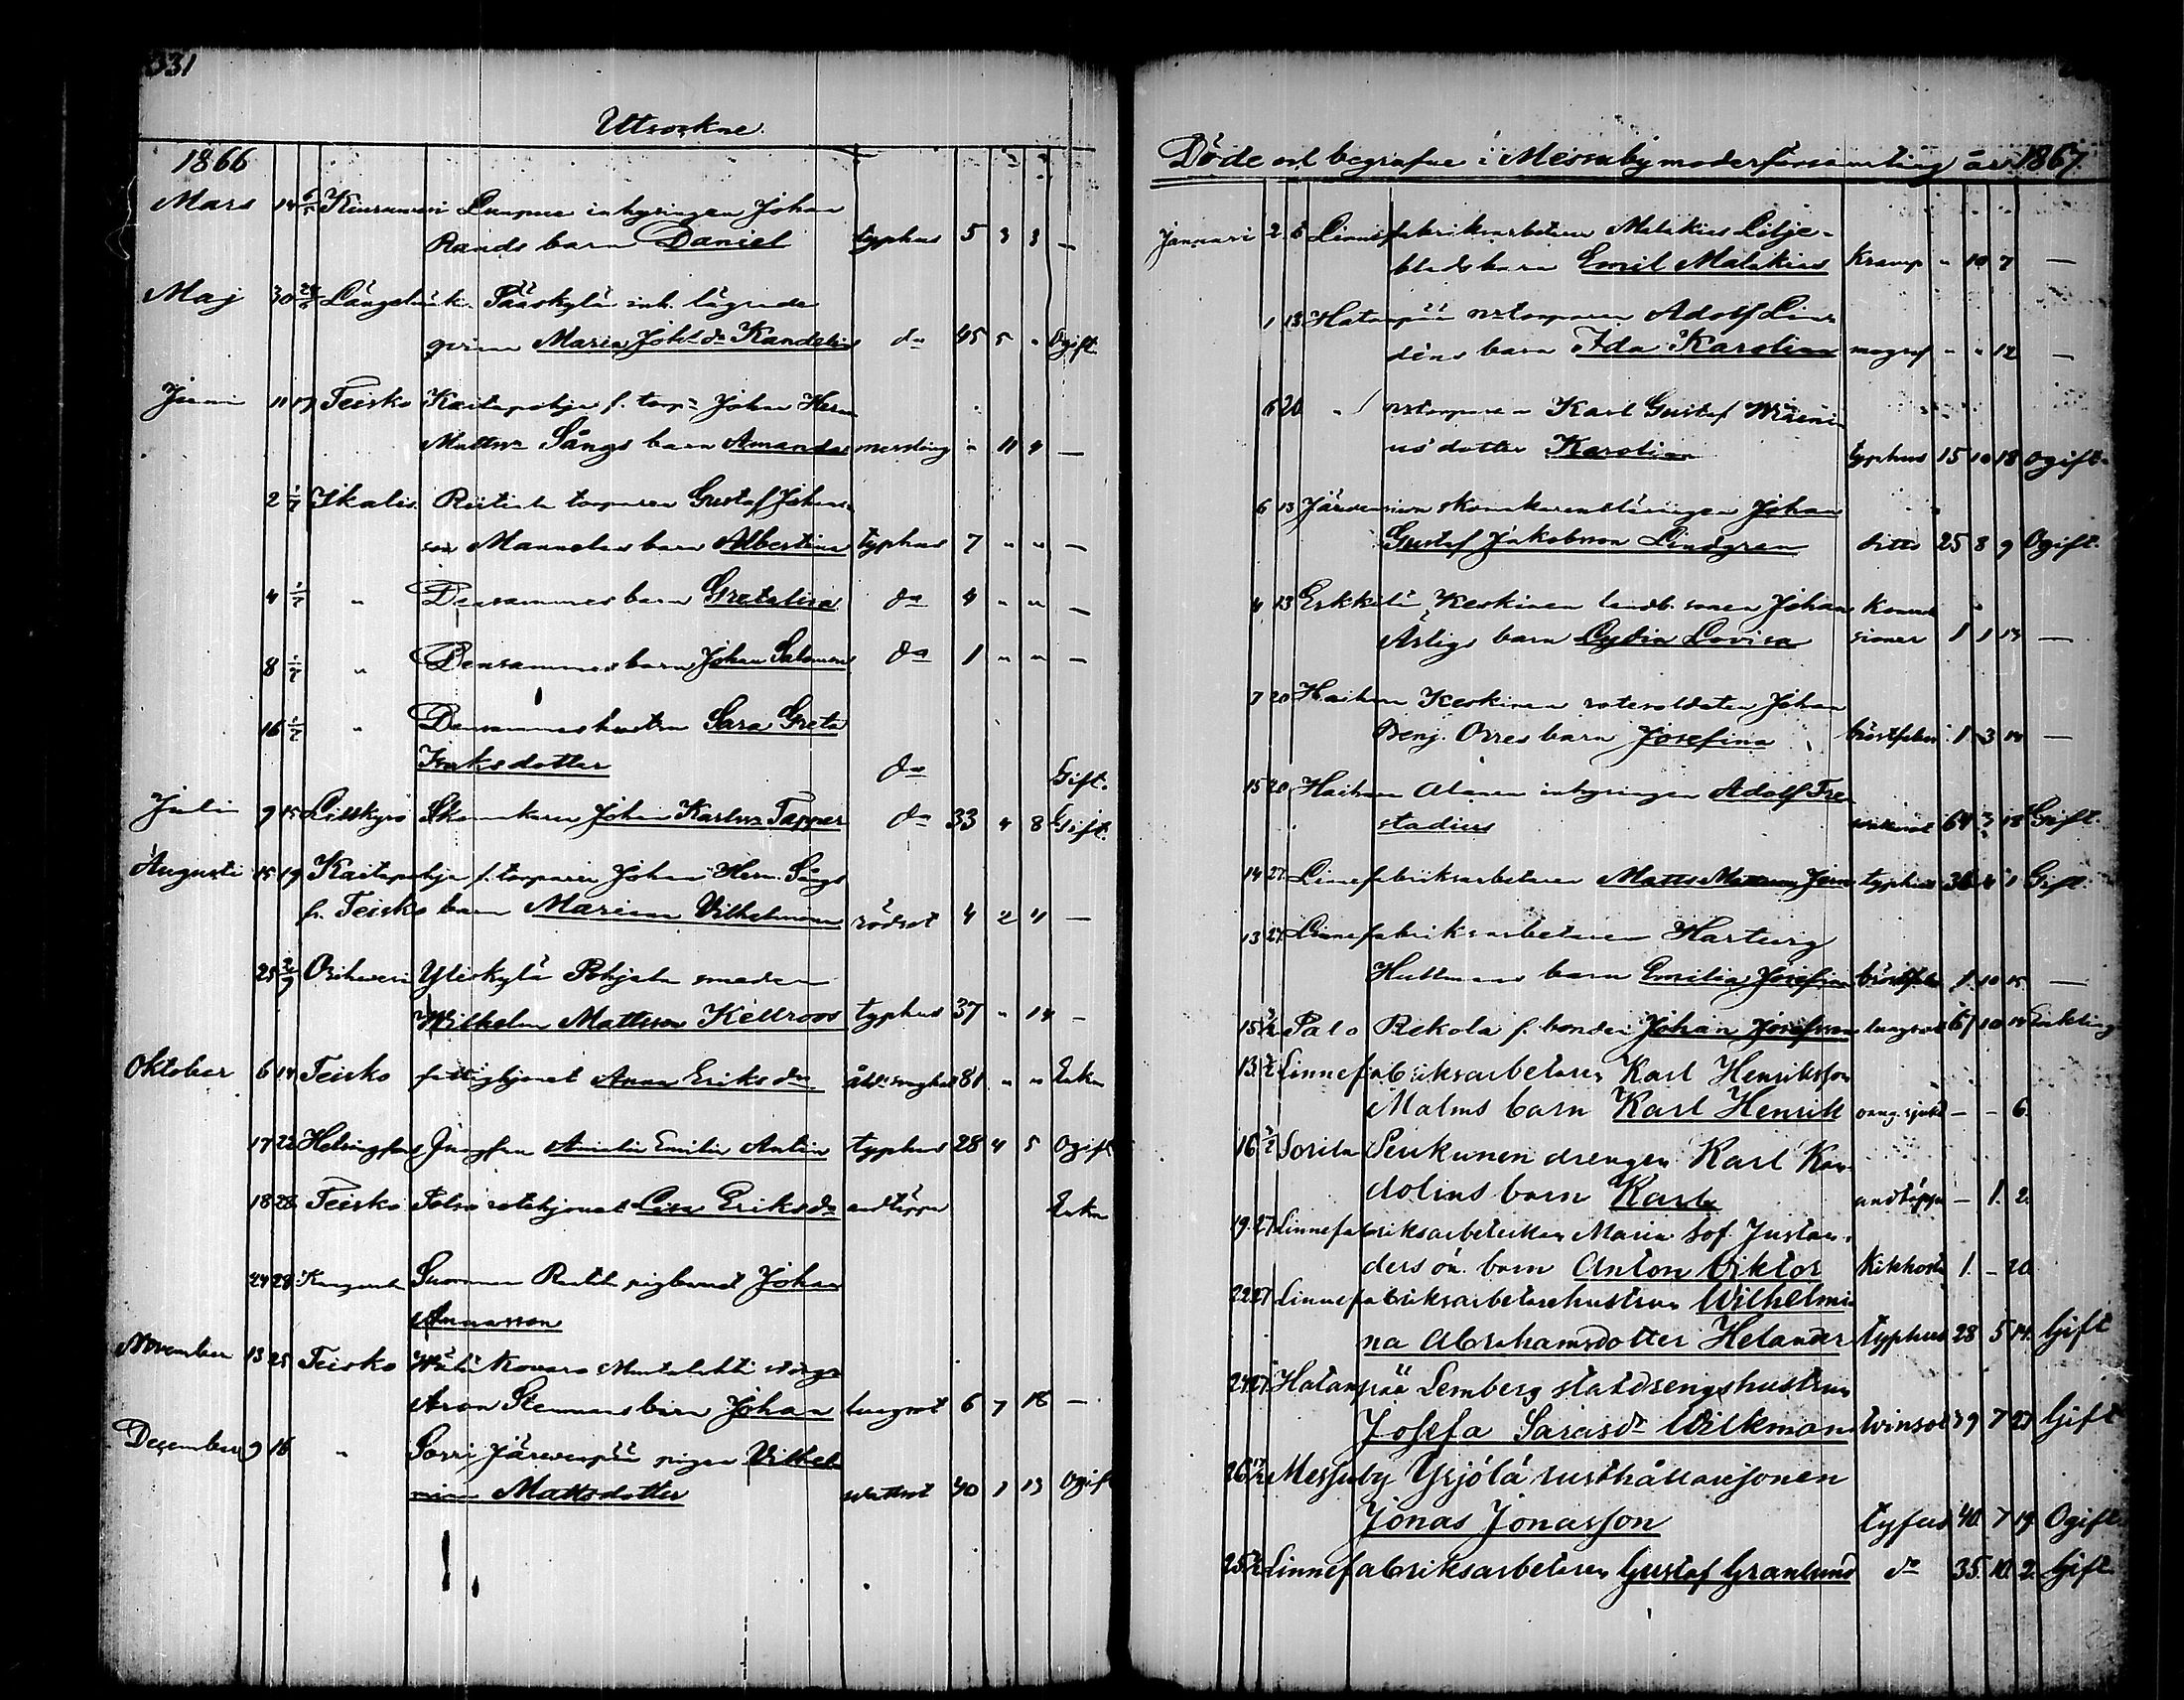 331
Utsockne.
1866
Mars 14 6/5 Kiuruvesi inhysingen Johan
Rands barn Daniel typhus 5 3 3 —
Maj 30 Längelmäki Sääskylä inh.
Maria Joh:s dr Kandelin do 45 5 " Ogift
Juni 11 17 Teisko Kaitapohja f. torp:n Johan Herm
Mattss:n Långs barn Amanda messling " 11 4 —
2 1/7 Ikalis torparen Gustaf Johans-
son barn Albertina typhus 7 " " —
4 1/7 " Densammes barn Gretalisa do 4 " " —
8 1/7 " Densammes barn Johan Salomon do 1 " " —
16 1/7 " Densammes hustru Sara Greta
Isaksdotter do Gift.
Juli 9 15 Lillkyro Skomakaren Johan Karlss:n Tapper do 33 4 8 Gift.
Augusti 15 19 Kaitapohja f. torparen Johan Herm. Långs
fr. Teisko barn Maria Vilhelmina rödsot 4 2 4 —
25 2/9 Orihvesi Yliskylä Pohjala smeden
Wilhelm Mattsson Kellroos typhus 37 " 14 —
Oktober 6 14 Teisko fattighjonet Anna Eriksdr 81 " " Enka
17 22 Helsingfors Jungfru Amalia Emilia Antin typhus 28 4 5 Ogift
18 28 Teisko rotehjonet Lisa Eriksdr andtäppa Enka
24 28 Kangasala Suomen Johan
Annasson
November 13 25 Teisko
Aron Stenmans barn Johan lungsot 6 7 18 —
December 9 16 " Sorri Järvenpää pigan Vilhel-
mina Mattsdotter wattsot 40 1 13 Ogift
Döde och begrafne i Messuby moderförsamling år 1867.
Januari 2 6 Linnefabriksarbetaren Malakias Lilje-
blads barn Emil Malakias Kramp " 10 7 —
1 13 Hatanpää torparen Adolf Lin-
dens barn Ida Karolina magref " " 12 —
6 20 " torparen Karl Gustaf Wireni-
us dotter Karolina typhus 15 10 18 Ogift.
6 13 Järvensivu skomakarensläringen Johan
Gustaf Jakobsson Lindgren ditto 25 8 9 Ogift.
4 13 Erkkilä Keskinen landb. sonen Johan
Ärligs barn Lydia Lovisa 1 1 13 —
7 20 Haihara Keskinen rotesoldaten Johan
Benj. Orres barn Josefina bröstfeber 1 3 14 —
15 20 Haihara Alanen inhysingen Adolf Fre-
stadius 64 3 18 Gift.
14 27 Linnefabriksarbetaren Matts Mattsson typhus 36 4 1 Gift.
13 27 Linnefabriksarbetaren Hartwig
Hultmans barn Emilia Josefina bröstfeber 1 10 15 —
15 Palo Rekola f. bonden Johan Josefsson lungsot 61 10 14 Enkling
13 Linnefabriksarbetaren Karl Henriksson
Malms barn Karl Henrik oang. sjukd — — 6.
16 Sorila Penkunen drengen Karl Kan-
dolins barn Karl andtäppa — 1. 2.
19. 27 Linnefabriksarbeterskan Maria Sof. Justan-
ders oä. barn Anton Viktor Kikhosta 1. — 20
22 27 Linnefabriksarbetarehustrun Wilhelmi-
na Abrahamsdotter Helander typhus 28 5 14. Gift
24 27. Hatanpää Lemberg statdrengshustrun
Josefa Sarasdr Wilkman twinsot 39 7 27 Gift
26 Messuby Yrjölä rusthållaresonen
Jonas Jonasson tyfus 40. 7 19. Ogift.
25 Linnefabriksarbetaren Gustaf Granlund do 35. 10. 2. Gift.